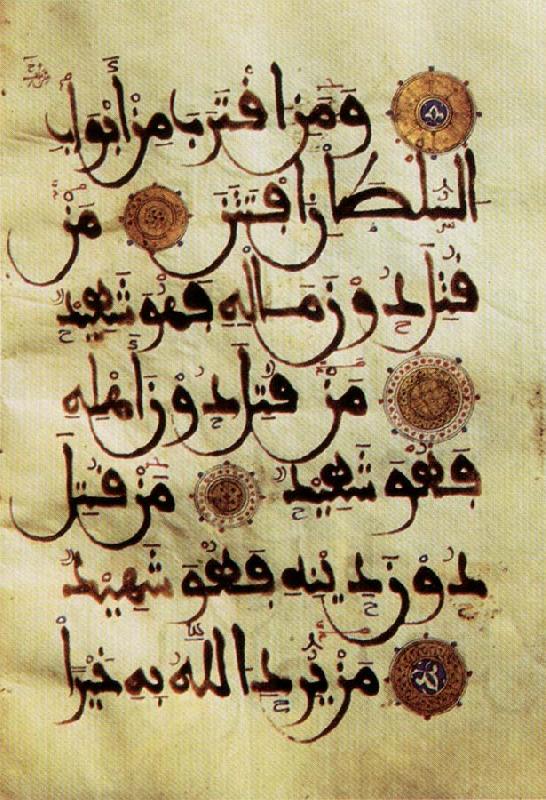 وَمَنِ اقْتَرَبَ مِنْ أَبْوَابِ
السُّلْطَانِ افْتَتَنَ مَنْ
قُتِلَ دُونَ مَالِهِ فَهُوَ شَهِيدٌ
مَنْ قُتِلَ دُونَ أَهْلِهِ
فَهُوَ شَهِيدٌ مَنْ قُتِلَ
دُونَ دِينِهِ فَهُوَ شَهِيدٌ
مَنْ يُرِدِ اللَّهُ بِهِ خَيْرًا